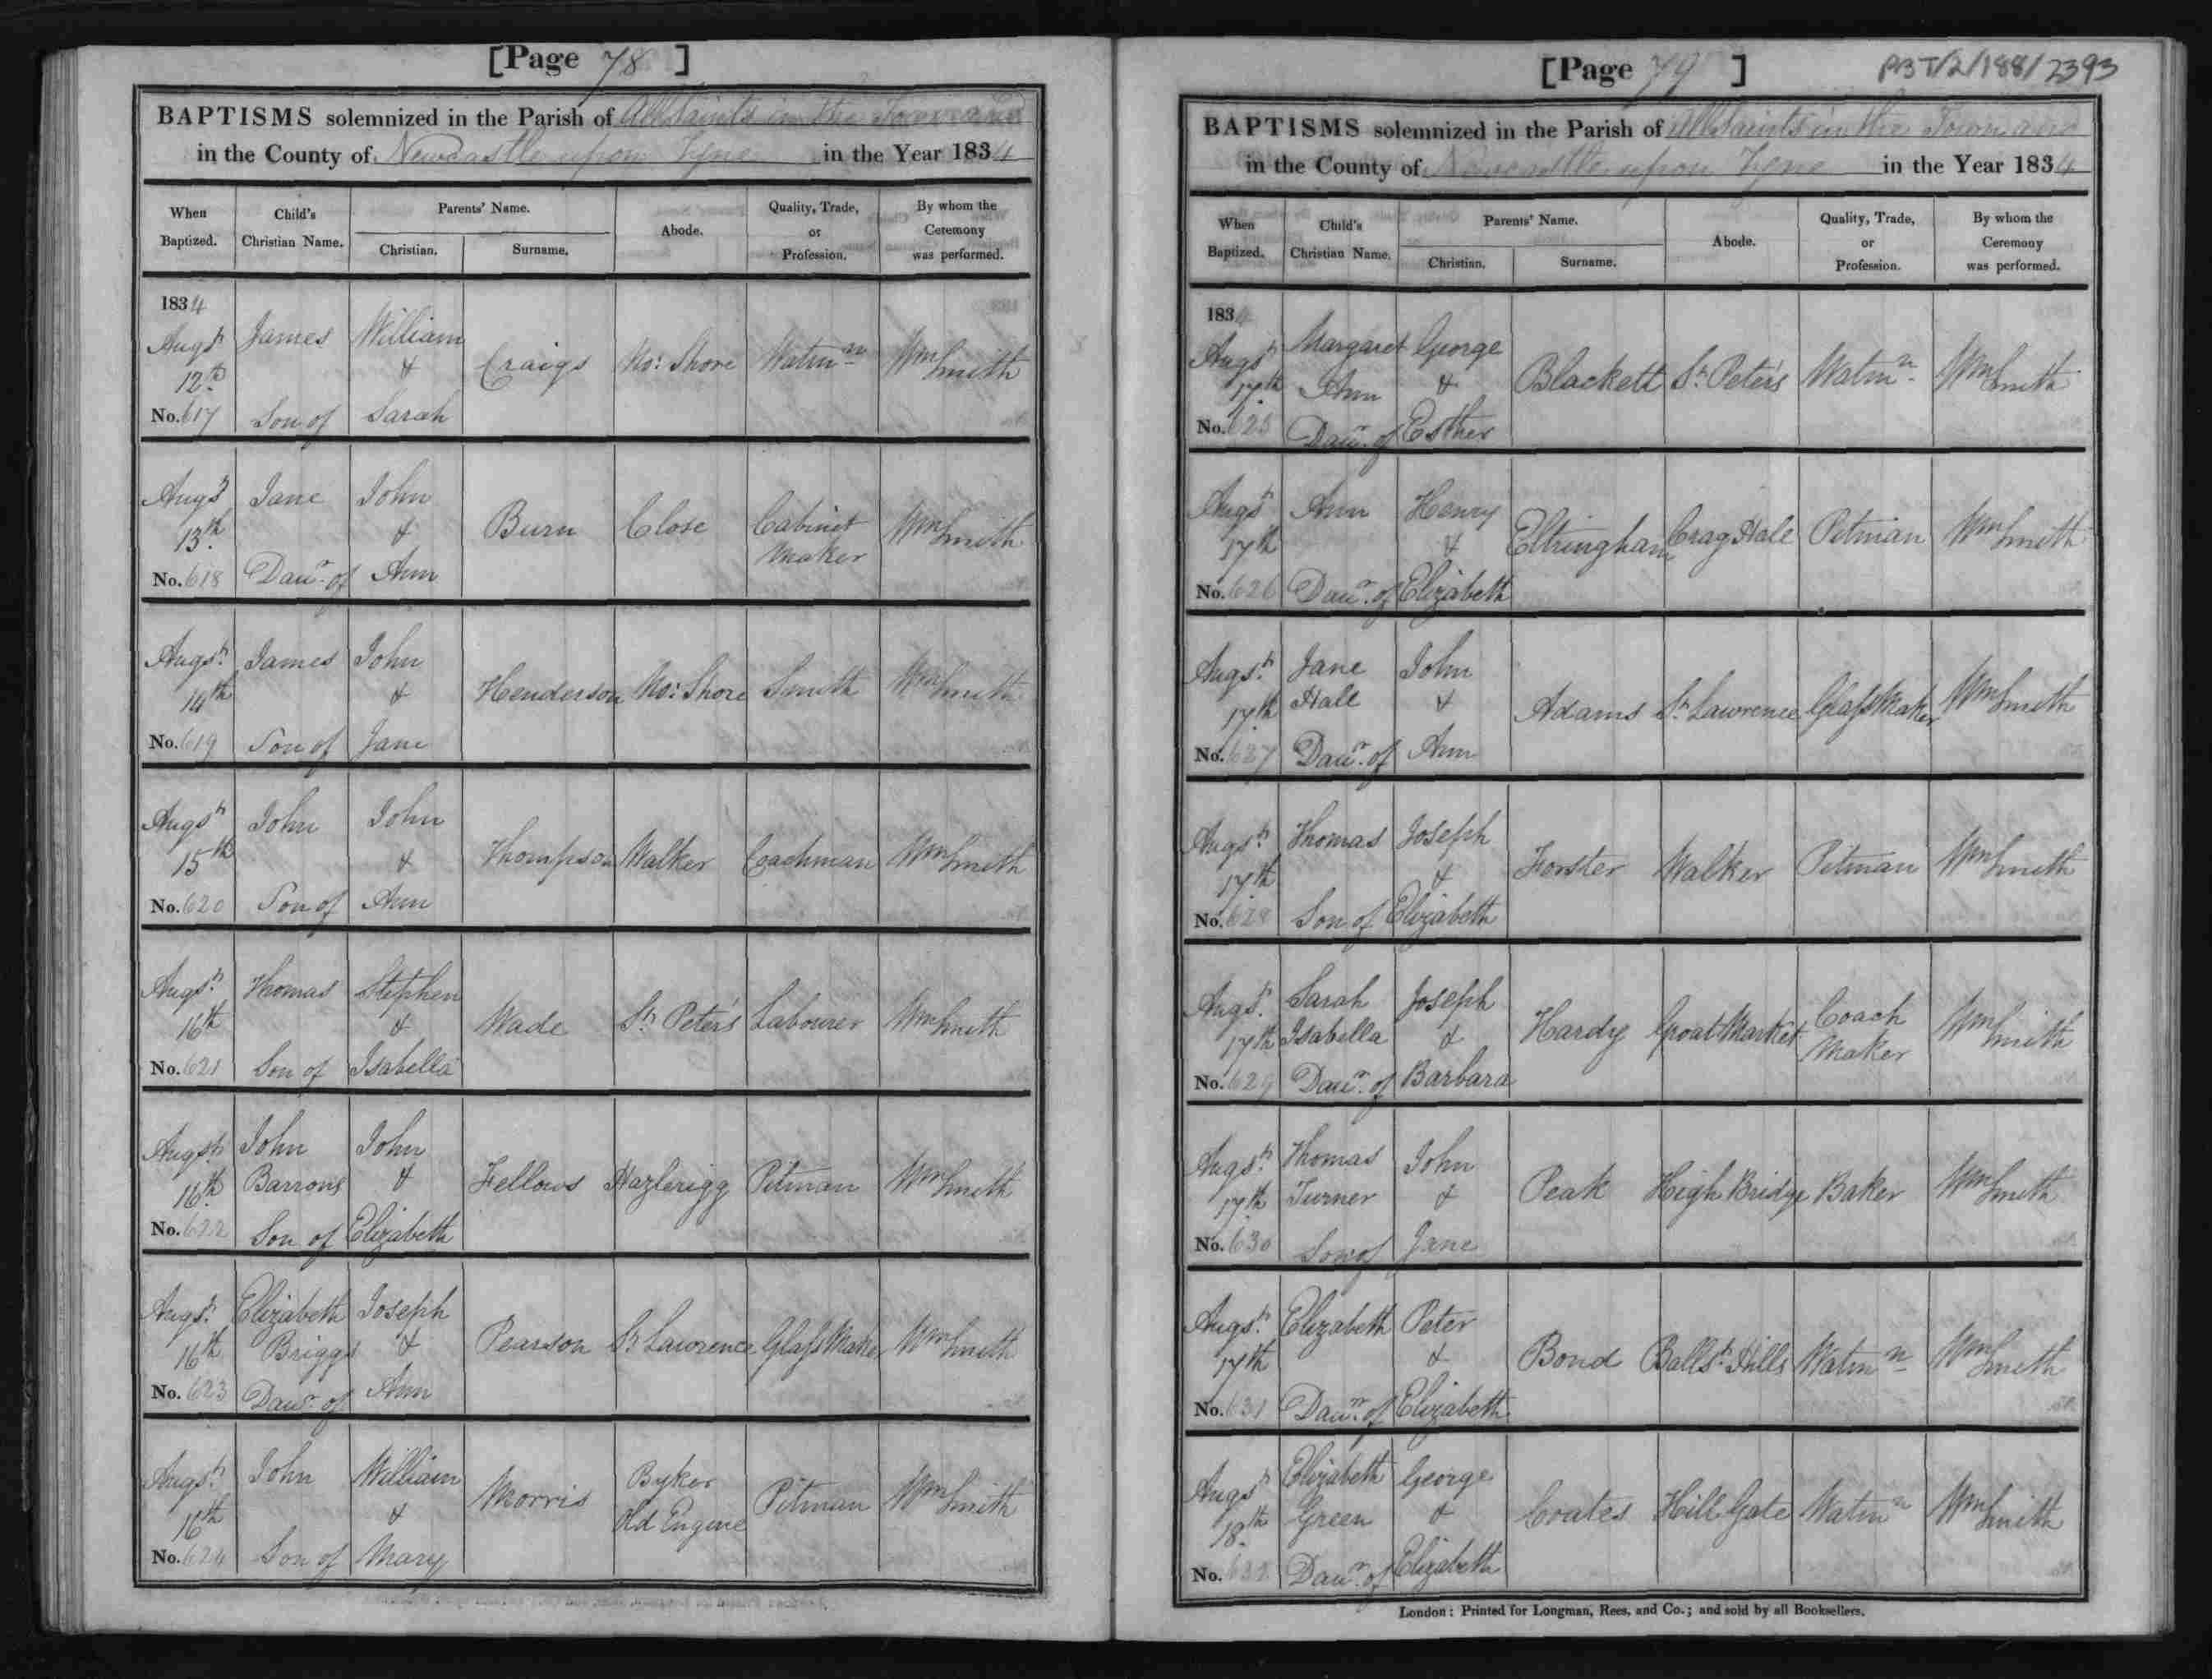 [Page 78]
BAPTISMS solemnized in the Parish of All Saints in the Town and
in the County of Newcastle upon Tyne in the Year 1834
When Baptized. Child's Christian Name. Parents' Name. Christian. Surname. Abode. Quality, Trade, or Profession. By whom the Ceremony was performed.
1834
Augst 12th No. 617 James Son of William & Sarah Craigs No: Shore Watmn Wm Smith
Augst 13th No. 618 Jane Daur. of John & Ann Burn Close Cabinet Maker Wm Smith
Augst 14th No. 619 James Son of John & Jane Henderson No: Shore Smith Wm Smith
Augst 15th No. 620 John Son of John & Ann Thompson Walker Coachman Wm Smith
Augst 16th No. 621 Thomas Son of Stephen & Isabella Wade St. Peter's Labourer Wm Smith
Augst 16th No. 622 John Barrons Son of John & Elizabeth Fellows Hazlerigg Pitman Wm Smith
Augst 16th No. 623 Elizabeth Briggs Daur. of Joseph & Ann Pearson St. Lawrence Glass Maker Wm Smith
Augst 16th No. 624 John Son of William & Mary Morris Byker Old Engine Pitman Wm Smith
[Page 79]
PBT/2/188/2393
BAPTISMS solemnized in the Parish of All Saints in the Town and
in the County of Newcastle upon Tyne in the Year 1834
When Baptized. Child's Christian Name. Parents' Name. Christian. Surname. Abode. Quality, Trade, or Profession. By whom the Ceremony was performed.
1834
Augst 17th No. 625 Margaret Ann Daur. of George & Esther Blackett St. Peter's Watmn Wm Smith
Augst 17th No. 626 Ann Daur. of Henry & Elizabeth Eltringham Crag Hale Pitman Wm Smith
Augst 17th No. 627 Jane Hall Daur. of John & Ann Adams St. Lawrence Glass Maker Wm Smith
Augst 17th No. 628 Thomas Son of Joseph & Elizabeth Forster Walker Pitman Wm Smith
Augst 17th No. 629 Sarah Isabella Daur. of Joseph & Barbara Hardy Groat Market Coach Maker Wm Smith
Augst 17th No. 630 Thomas Turner Son of John & Jane Peak High Bridge Baker Wm Smith
Augst 17th No. 631 Elizabeth Daur. of Peter & Elizabeth Bond Ballst. Hills Watmn Wm Smith
Augst 18th No. 632 Elizabeth Green Daur. of George & Elizabeth Coates Hill Gate Watmn Wm Smith
London: Printed for Longman, Rees, and Co.; and sold by all Booksellers.